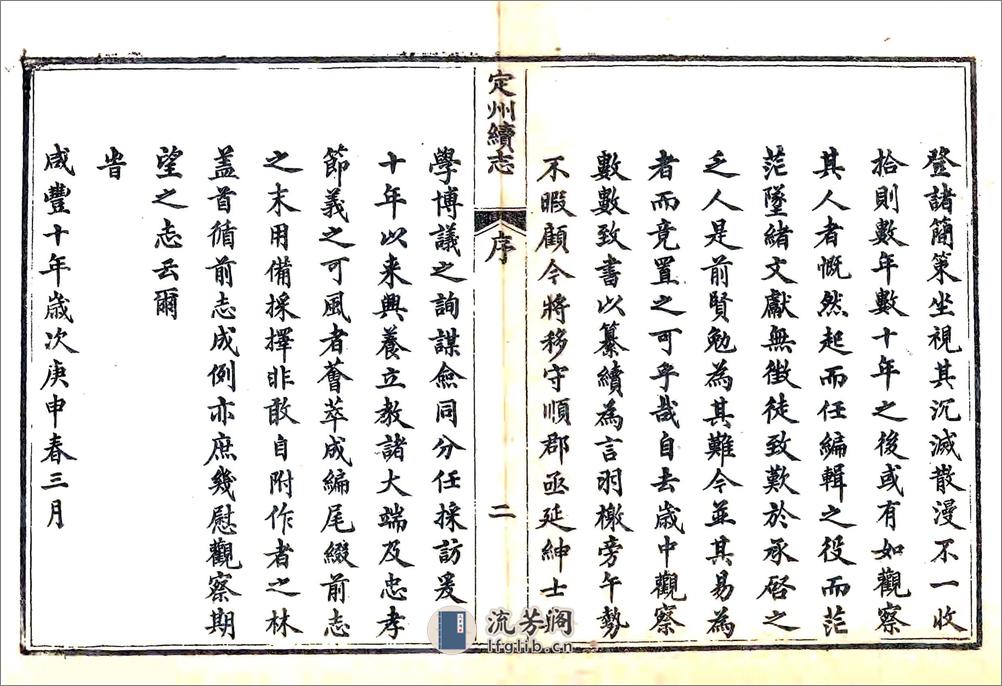 登諸簡策坐視其沉滅散漫不一收
拾則數年數十年之後或有如觀察
其人者慨然起而任編輯之役而茫
茫墜緒文獻無徴徒致歎於承啓之
乏人是前賢勉為其難今並其易為
者而竟置之可乎哉自去歲中觀察
數數致書以纂續為言羽檄旁午勢
不暇顧今將移守順郡亟延紳士
定州續志
序
二
學博議之詢謀僉同分任採訪爰
十年以来興養立教諸大端及忠孝
節義之可風者薈萃成編尾綴前志
之末用備採擇非敢自附作者之林
盖首循前志成例亦庶幾慰觀察期
望之志云爾
旹
咸豐十年歲次庚申春三月
流芳阁
lfglib.cn